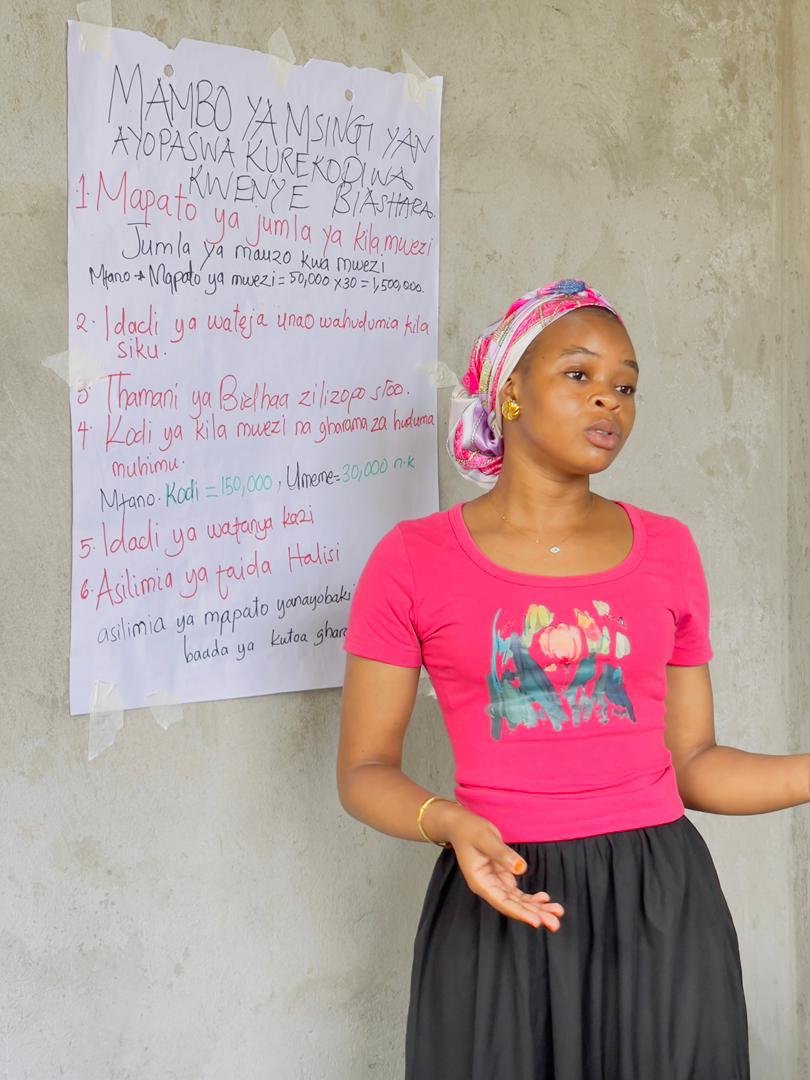 MAMBO YA MSINGI YAN
AYOPASWA KUREKODIWA
KWENYE BIASHARA.
1. Mapato ya jumla ya kila mwezi
Jumla ya mauzo kwa mwezi
Mfano → Mapato ya mwezi = 50,000 x30 = 1,500,000.
2. Idadi ya wateja unao wahudumia kila
siku.
3 Thamani ya Bidhaa zilizopo stoo.
4. Kodi ya kila mwezi na gharama za huduma
muhimu.
Mfano. Kodi = 150,000, Umeme = 30,000 n.k
5. Idadi ya wafanya kazi
6. Asilimia ya faida Halisi
asilimia ya mapato yanayobaki
baada ya kutoa ghara